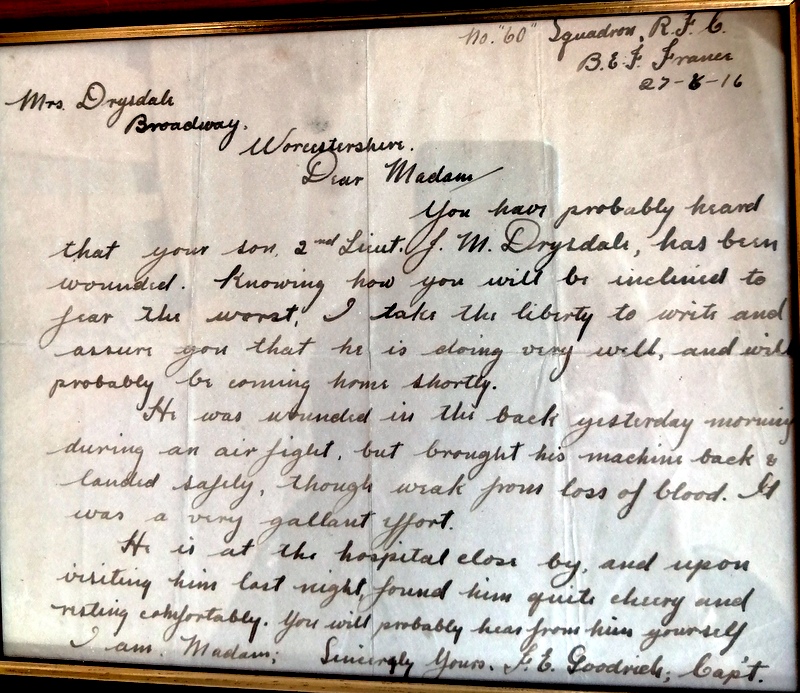 No. "60" Squadron, R.F.C.
B.E.F. France
27-8-16
Mrs. Drysdale
Broadway,
Worcestershire.
Dear Madam
You have probably heard
that your son, 2nd Lieut. J. M. Drysdale, has been
wounded. Knowing how you will be inclined to
fear the worst, I take the liberty to write and
assure you that he is doing very well, and will
probably be coming home shortly.
He was wounded in the back yesterday morning
during an air fight, but brought his machine back &
landed safely, though weak from loss of blood. It
was a very gallant effort.
He is at the hospital close by, and upon
visiting him last night, found him quite cheery and
resting comfortably. You will probably hear from him yourself
I am. Madam; Sincerely Yours. F. E. Goodrich; Cap't.